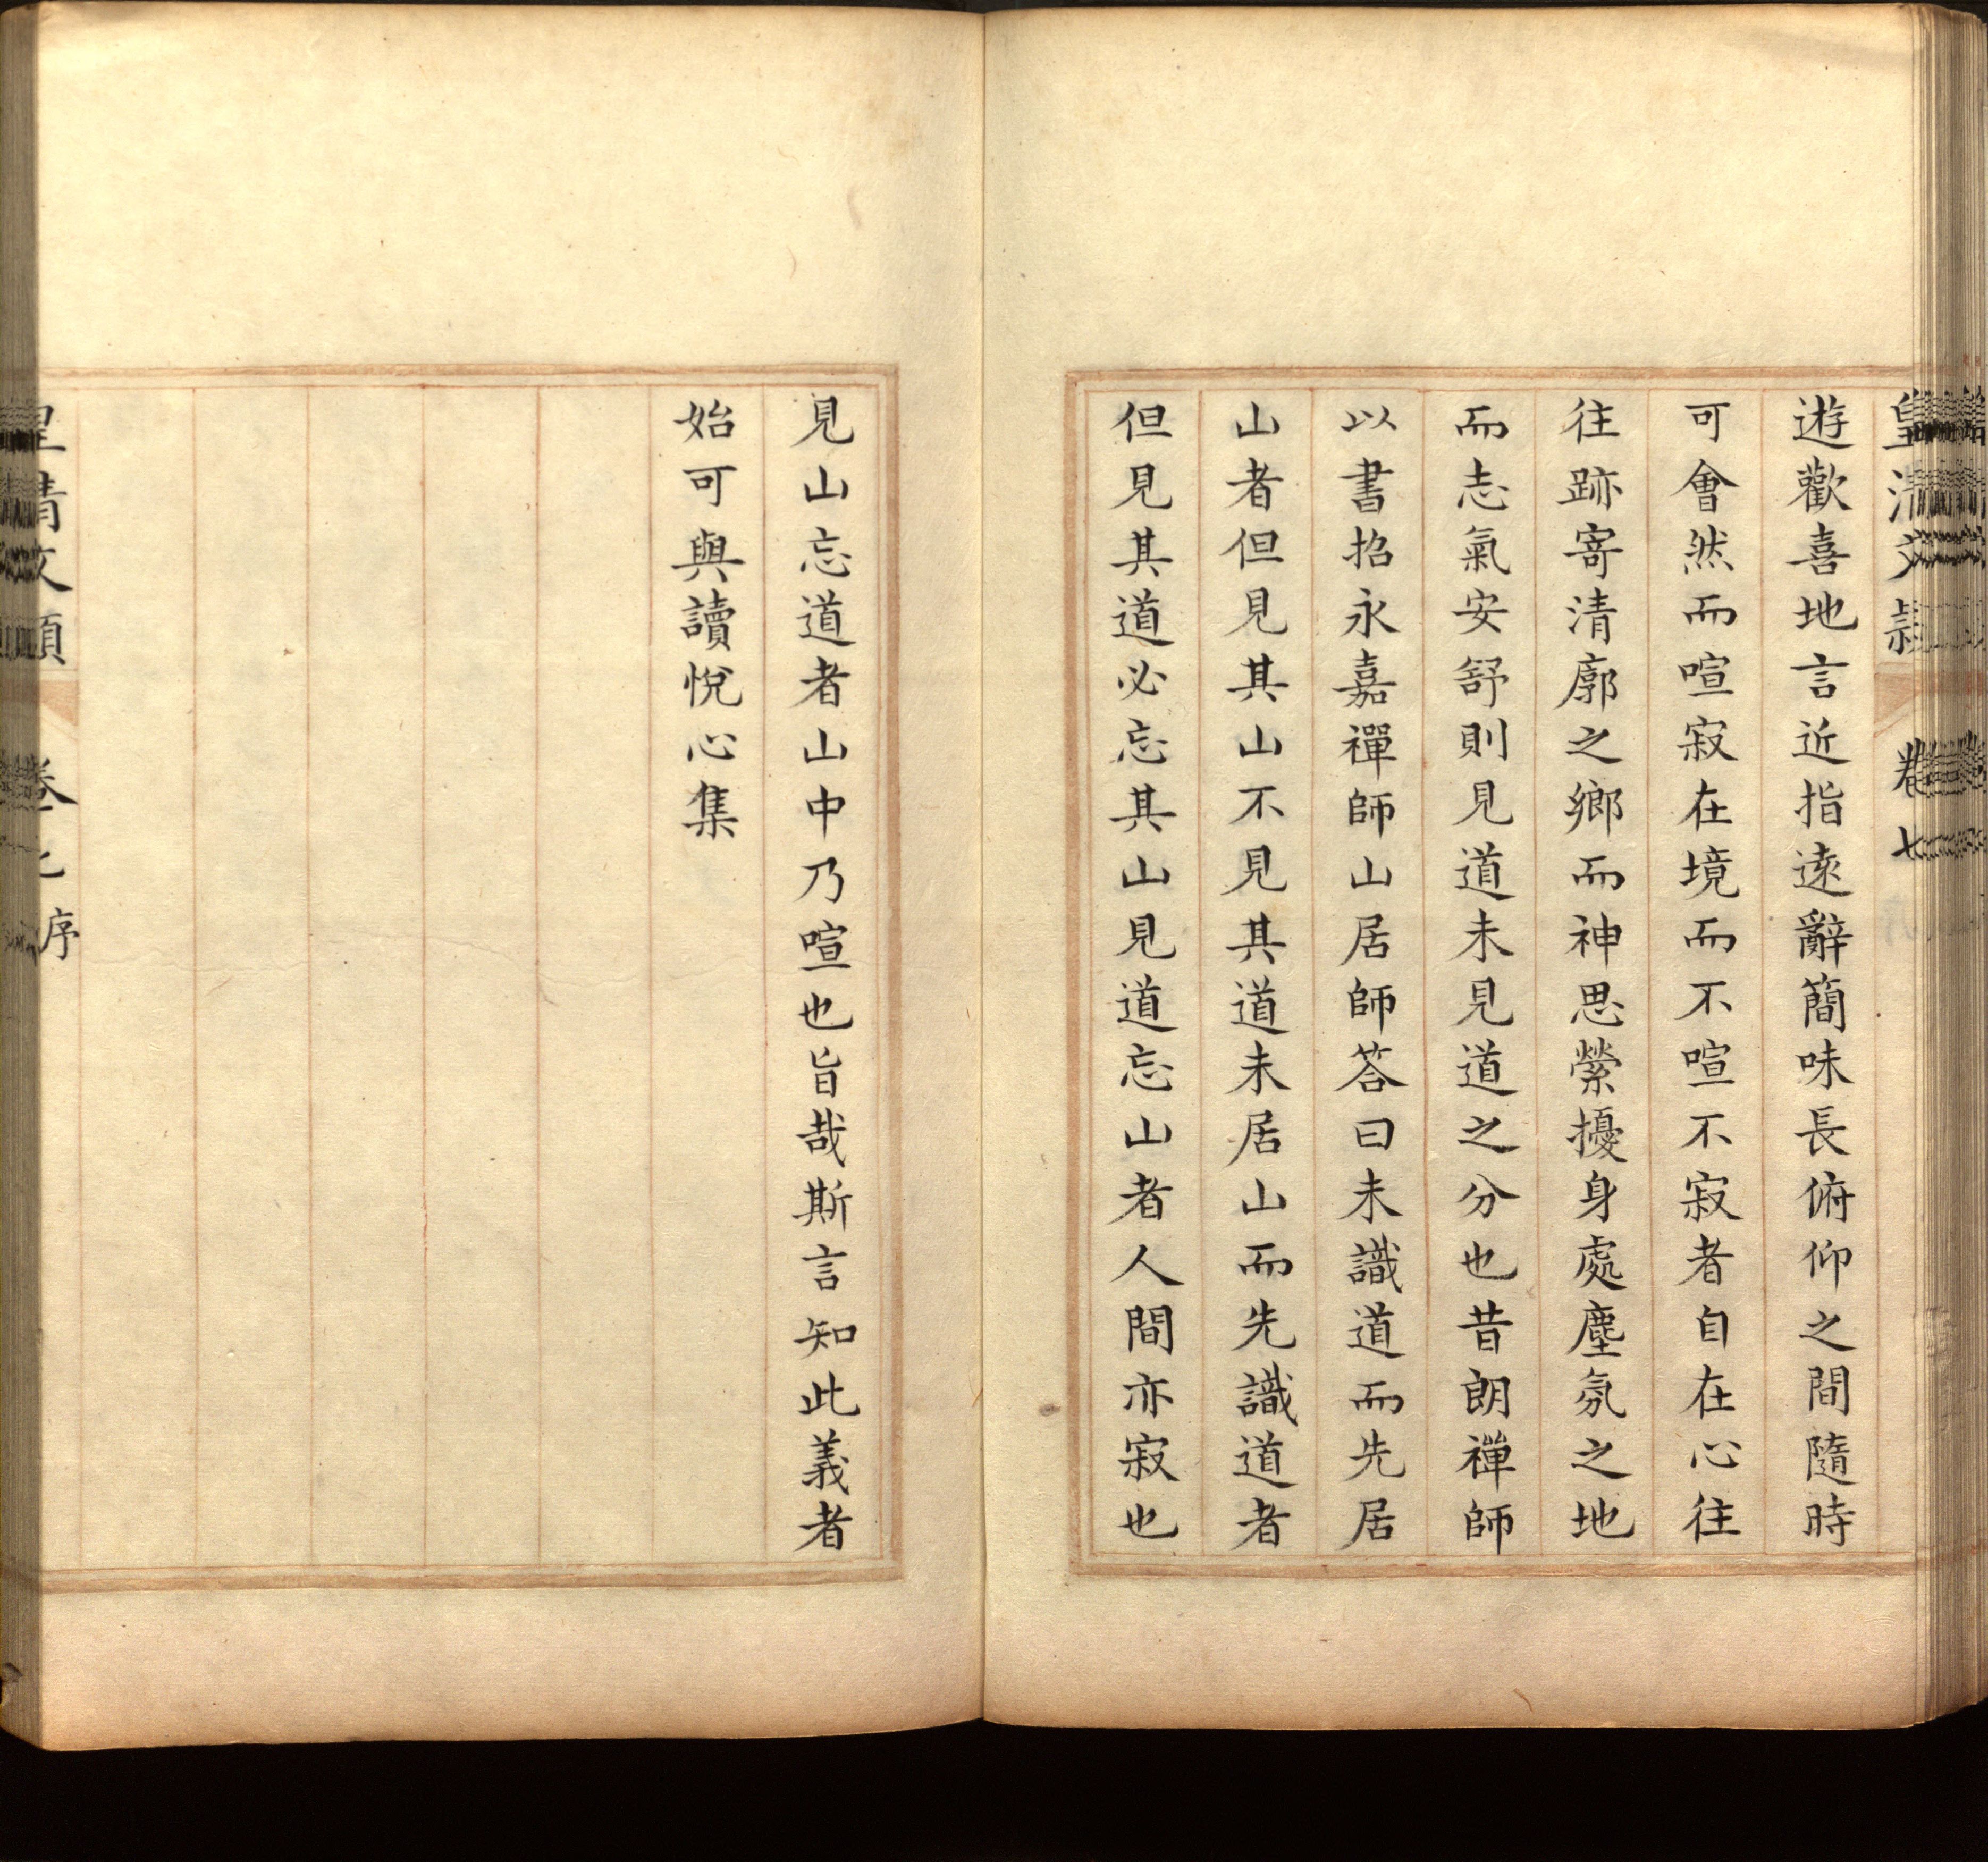 皇清文穎 卷七
遊歡喜地言近指遠辭簡味長俯仰之間隨時
可會然而喧寂在境而不喧不寂者自在心往
往跡寄清廓之鄉而神思縈擾身處塵氛之地
而志氣安舒則見道未見道之分也昔朗禪師
以書招永嘉禪師山居師答曰未識道而先居
山者但見其山不見其道未居山而先識道者
但見其道必忘其山見道忘山者人間亦寂也
見山忘道者山中乃喧也旨哉斯言知此義者
始可與讀悅心集
皇清文穎 卷七 序